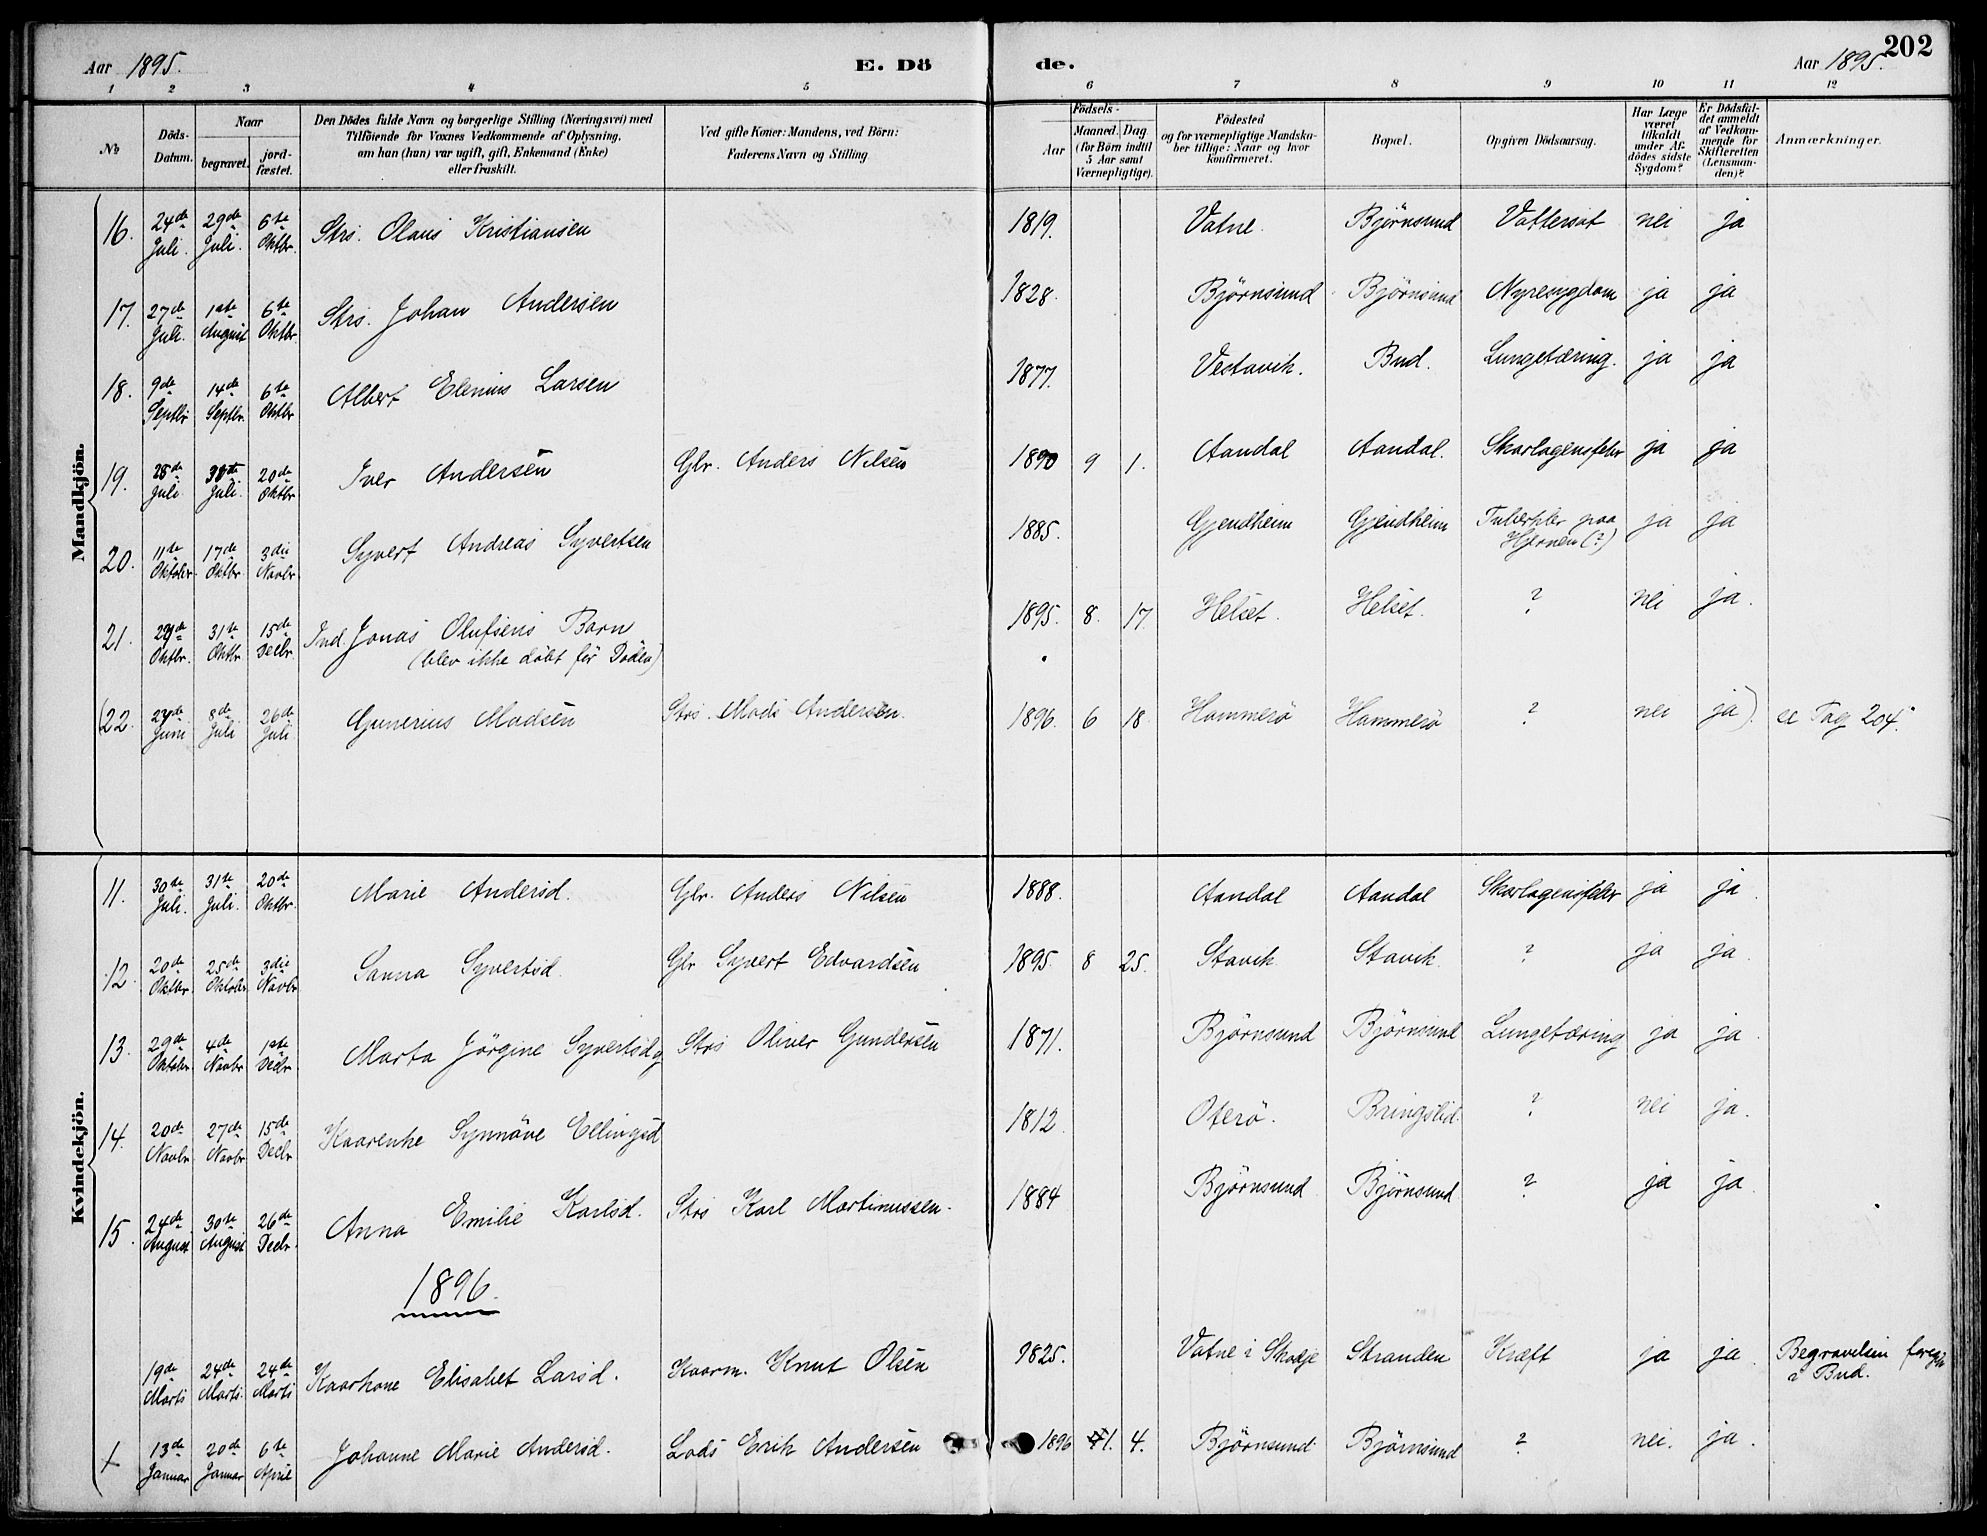 202
Aar 1895. E. Dö de. Aar 1895.
1 2 3 4 5 6 7 8 9 10 11 12
№ Döds-Datum. Naar begravet. jordfæstet. Den Dödes fulde Navn og borgerlige Stilling (Næringsvei) med Tilföiende for Voxnes Vedkommende af Oplysning, om han (hun) var ugift, gift, Enkemand (Enke) eller fraskilt. Ved gifte Koner: Mandens, ved Börn: Faderens Navn og Stilling. Födsels- Aar Maaned. Dag (for Börn indtil 5 Aar samt Værnepligtige). Födested og for værnepligtige Mandskaber tillige: Naar og hvor konfirmeret. Bopæl. Opgiven Dödsaarsag. Har Læge været tilkaldt under Afdödes sidste Sygdom? Er Dödsfaldet anmeldt af Vedkommende for Skifteretten (Lensmanden)? Anmærkninger.
Mandkjön.
16. 24de Juli. 29de Juli. 6te Oktbr. Strs. Olaus Kristiansen 1819. Vatne. Björnsund Vattersot nei ja
17. 27de Juli. 1ste August 6te Oktbr. Strs. Johan Andersen 1828. Björnsund Björnsund Nyresygdom ja ja
18. 9de Septbr 14de Septbr. 6te Oktbr Albert Elenius Larsen 1877. Vestavik. Bud. Lungetæring. ja ja
19. 28de Juli Juli. 20de Oktbr Iver Andersen Gbr. Anders Nilsen 1890 9 1. Aandal Aandal. Skarlagensfeber ja ja
20. 11te Oktober 17de Oktbr. 3die Novbr. Syvert Andreas Syvertsen 1885. Gjendheim Gjendheim Tuberkler paa Hjernen (?) ja ja
21. Oktbr. 31te Oktbr 15de Decbr. Ind. Jonas Olufsens Barn (blev ikke döbt för Döden) 1895. 8. 17 Helset. Helset. ? nei ja.
(22. Juni 8de Juli 26de Juli Gunerius Madsen Strs. Mads Andersen. 1896. 6 18 Hammerö Hammerö ? nei ja). se Pag 204.
Kvindekjön.
11. 30te Juli. 31te Juli. 20de Oktbr. Marie Andersd. Gbr. Anders Nilsen 1888. Aandal Aandal Skarlagensfeber ja ja.
12. 20de Oktbr. 25de Oktober 3die Novbr Sanna Syvertsd. Gbr Syvert Edvardsen 1895. 8 25. Stavik Stavik. ? ja ja.
13. 29de Oktober 4de Novbr 1ste Decbr. Marta Jörgine Syvertsdg Strs Oliver Gundersen 1871. Björnsund Björnsund Lungetæring ja ja.
14. 20de Novbr. 27de Novbr 15de Decbr Kaarenke Synnöve Ellingsd 1812. Oterö. Bringslid. ? nei ja.
15. 24de August 30te August 26de Decbr. Anna Emilie Karlsd. Strs Karl Martinussen. 1884 Björnsund Björnsund ? ja ja.
1896.
19de Marts 24de Marts. 24de Marts Kaarhane Elisabet Larsd. Kaarm. Knut Olsen 1825. Vatne i Skodje Stranden Kræft ja ja. Begravelsen foregik i Bud.
+ 13de Januar 20de Januar 6te April Johanne Marie Andersd. Lods Erik Andersen 1896 1. 4. Björnsund Björnsund ? nei. ja.